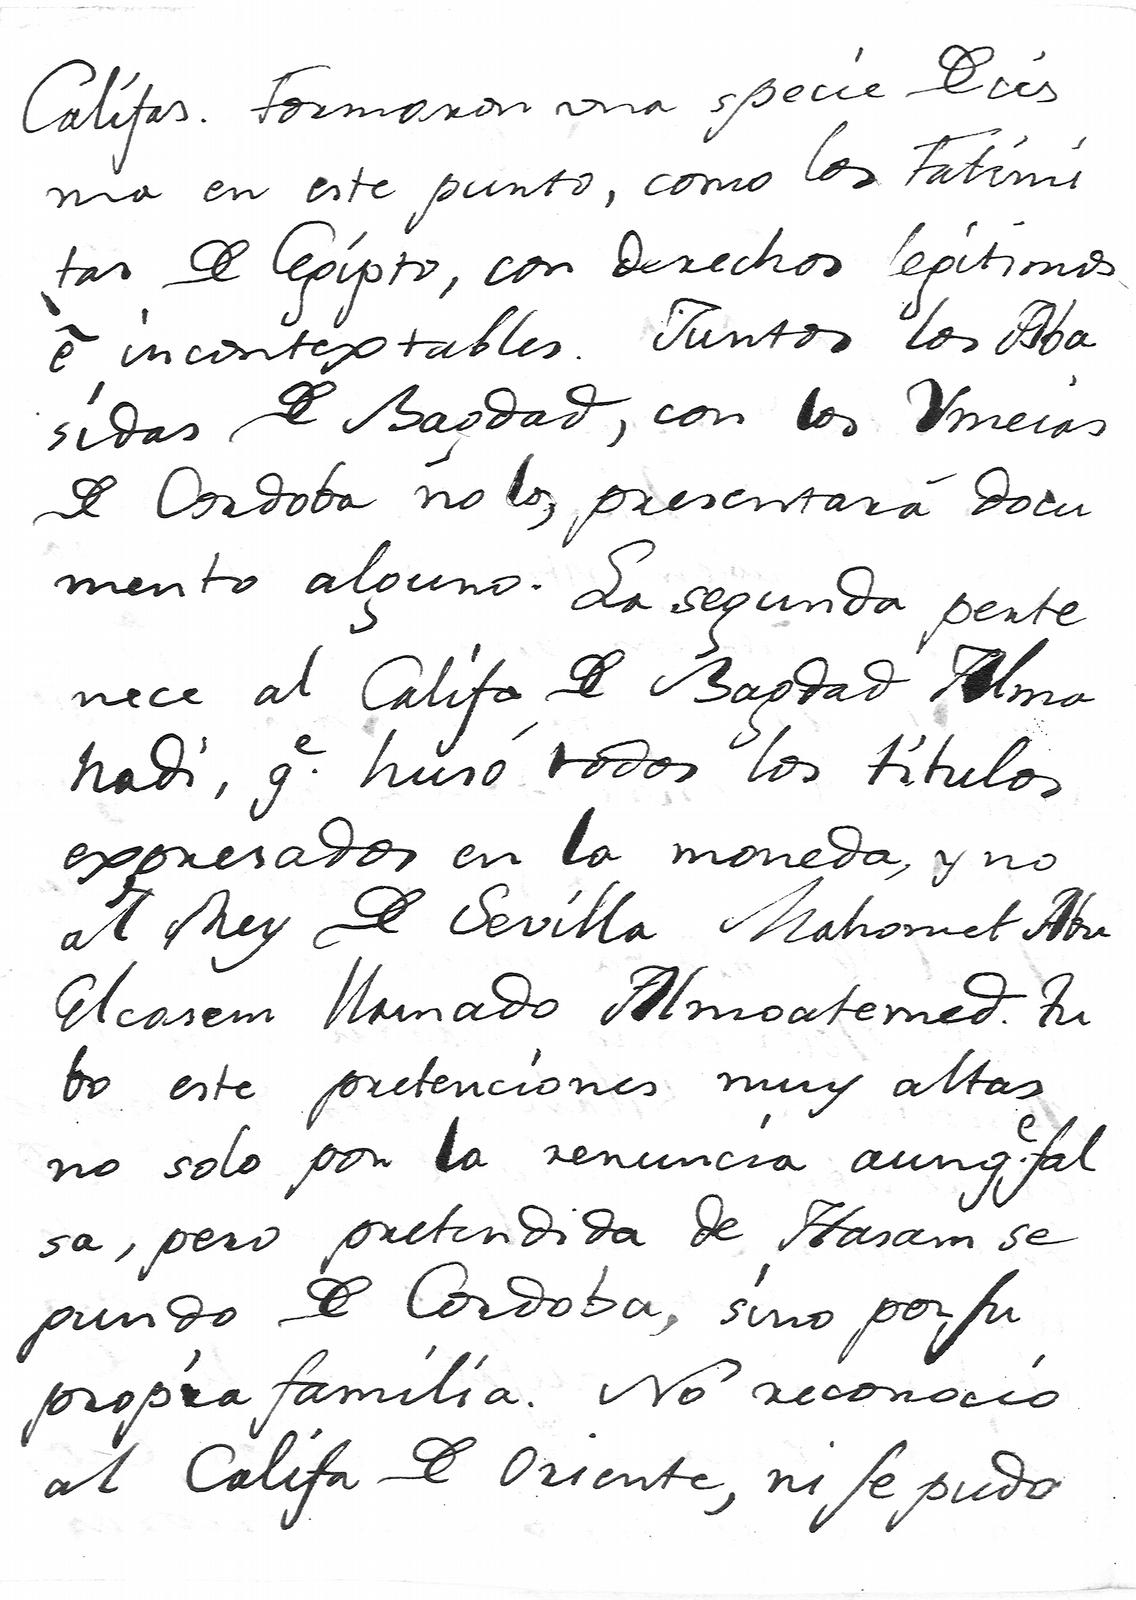 Califas. Formaron una specie De cis
ma en este punto, como los Fatimi
tas De Egipto, con derechos legitimos
è incontextables. Juntos los Aba
sidas De Bagdad, con los Vmeias
De Cordoba no los presentarà docu
mento alguno. La segunda perte
nece al Califa De Bagdad Alma
hadi, qe. husó todos los titulos
expresados en la moneda, y no
al Rey De Sevilla Mahomet Abu
Elcasem llamado Almoatemed. Tu
bo este pretenciones muy altas
no solo por la renuncia aunqe. fal
sa, pero pretendida de Hasam se
gundo De Cordoba, sino por su
propia familia. No reconocio
al Califa De Oriente, ni se pudo